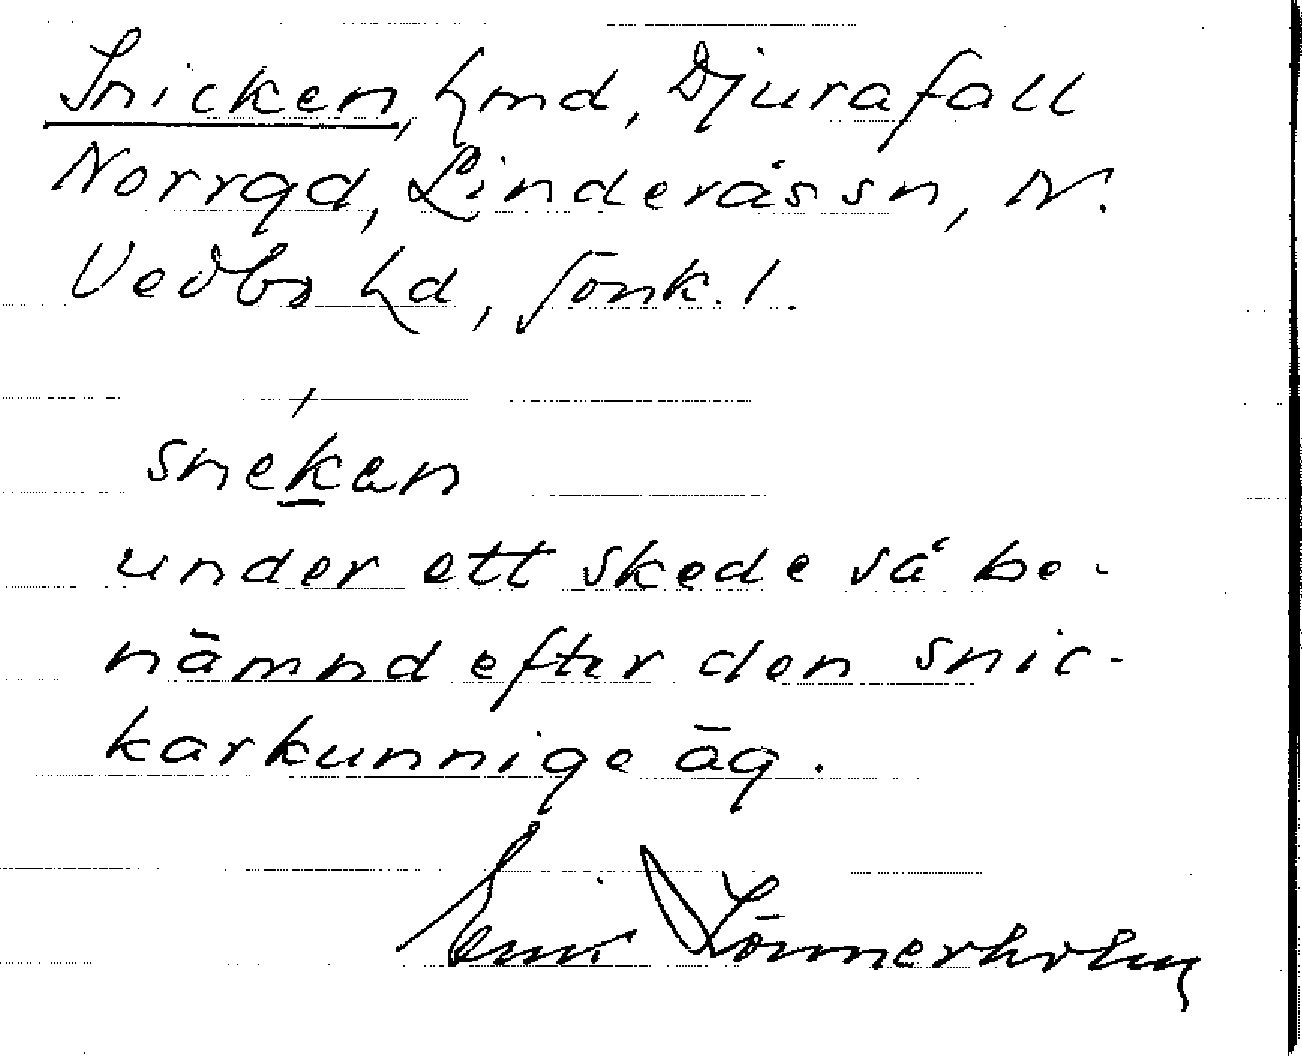 Snicken, hmd, Djurafall
Norrgd, Linderås sn, N.
Vedbo hd, Jönk. l.
snekan
under ett skede så be-
nämnd efter den snic-
karkunnige äg.
Lönnerholm